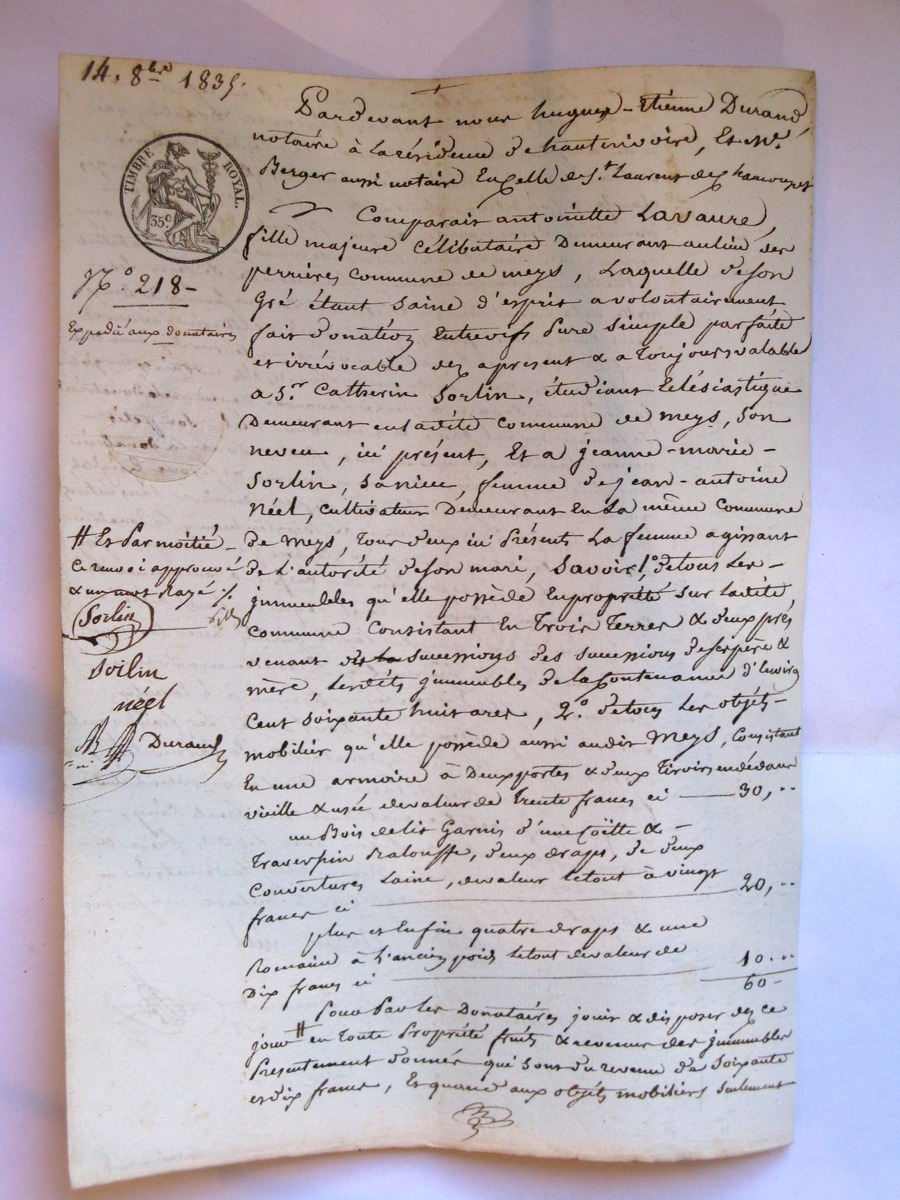 14. 8bre 1835.
Pardevant nous hugues-étienne Durand
notaire à la résidence de hauterivoire, Et Me.
Berger aussi notaire En celle de St. Laurent de chamousset
TIMBRE ROYAL.
35c.
Comparait antoinette Lavaure,
fille majeure célibataire Demeurant au lieu des
perrières commune de meys, Laquelle de son
Gré étant saine d'esprit a volontairement
fait donation Entrevifs pure simple parfaite
et irrévocable dez apresent & a toujours valable
a Sr. Catherin Sorlin, étudiant Eclésiastique
Demeurant en ladite commune de meys, son
neveu, ici présent, Et a jeanne-marie-
Sorlin, sa niece, femme de jean-antoine
Néel, cultivateur Demeurant En la même commune
de meys, tous deux ici Présents La femme agissant
de L'autorité de son mari, Savoir 1.° de tous Les-
jmmeubles qu'elle possède En propriété sur ladite
commune Consistant En Trois Terres & deux prés
venant de la successions des successions de ses père &
mère, Lesdits jmmeubles de la contenance d'Environ
Cent soixante huit ares, 2.° de tous Les objets-
mobilier qu'elle possède aussi audit meys, Consistant
En une armoire à Deux portes & deux Tiroirs en dedans
vieille & usée de valeur de Trente francs ci — 30,..
un Bois de lit Garnis d'une Coëtte &-
Traverspin Balouffe, deux draps, de deux
Couvertures Laine, de valeur le tout à vingt
francs ci — 20,..
plus et Enfin quatre draps & une
Romaine à L'ancien poids le tout de valeur de
Dix francs ci — 10...
60-
Pour Par Les Donataires jouir & disposer dez ce
jour # en Toute Propriété fruits & revenus des jmmeubles
Présentement donnés qui sont du revenu de Soixante
et dix francs, Et quand aux objets mobiliers seulement
No. 218-
Expedié aux donataires
# Et Par moitié-
Ce renvoi approuvé
& un mot Rayé
Sorlin
Sorlin
néel
Durand